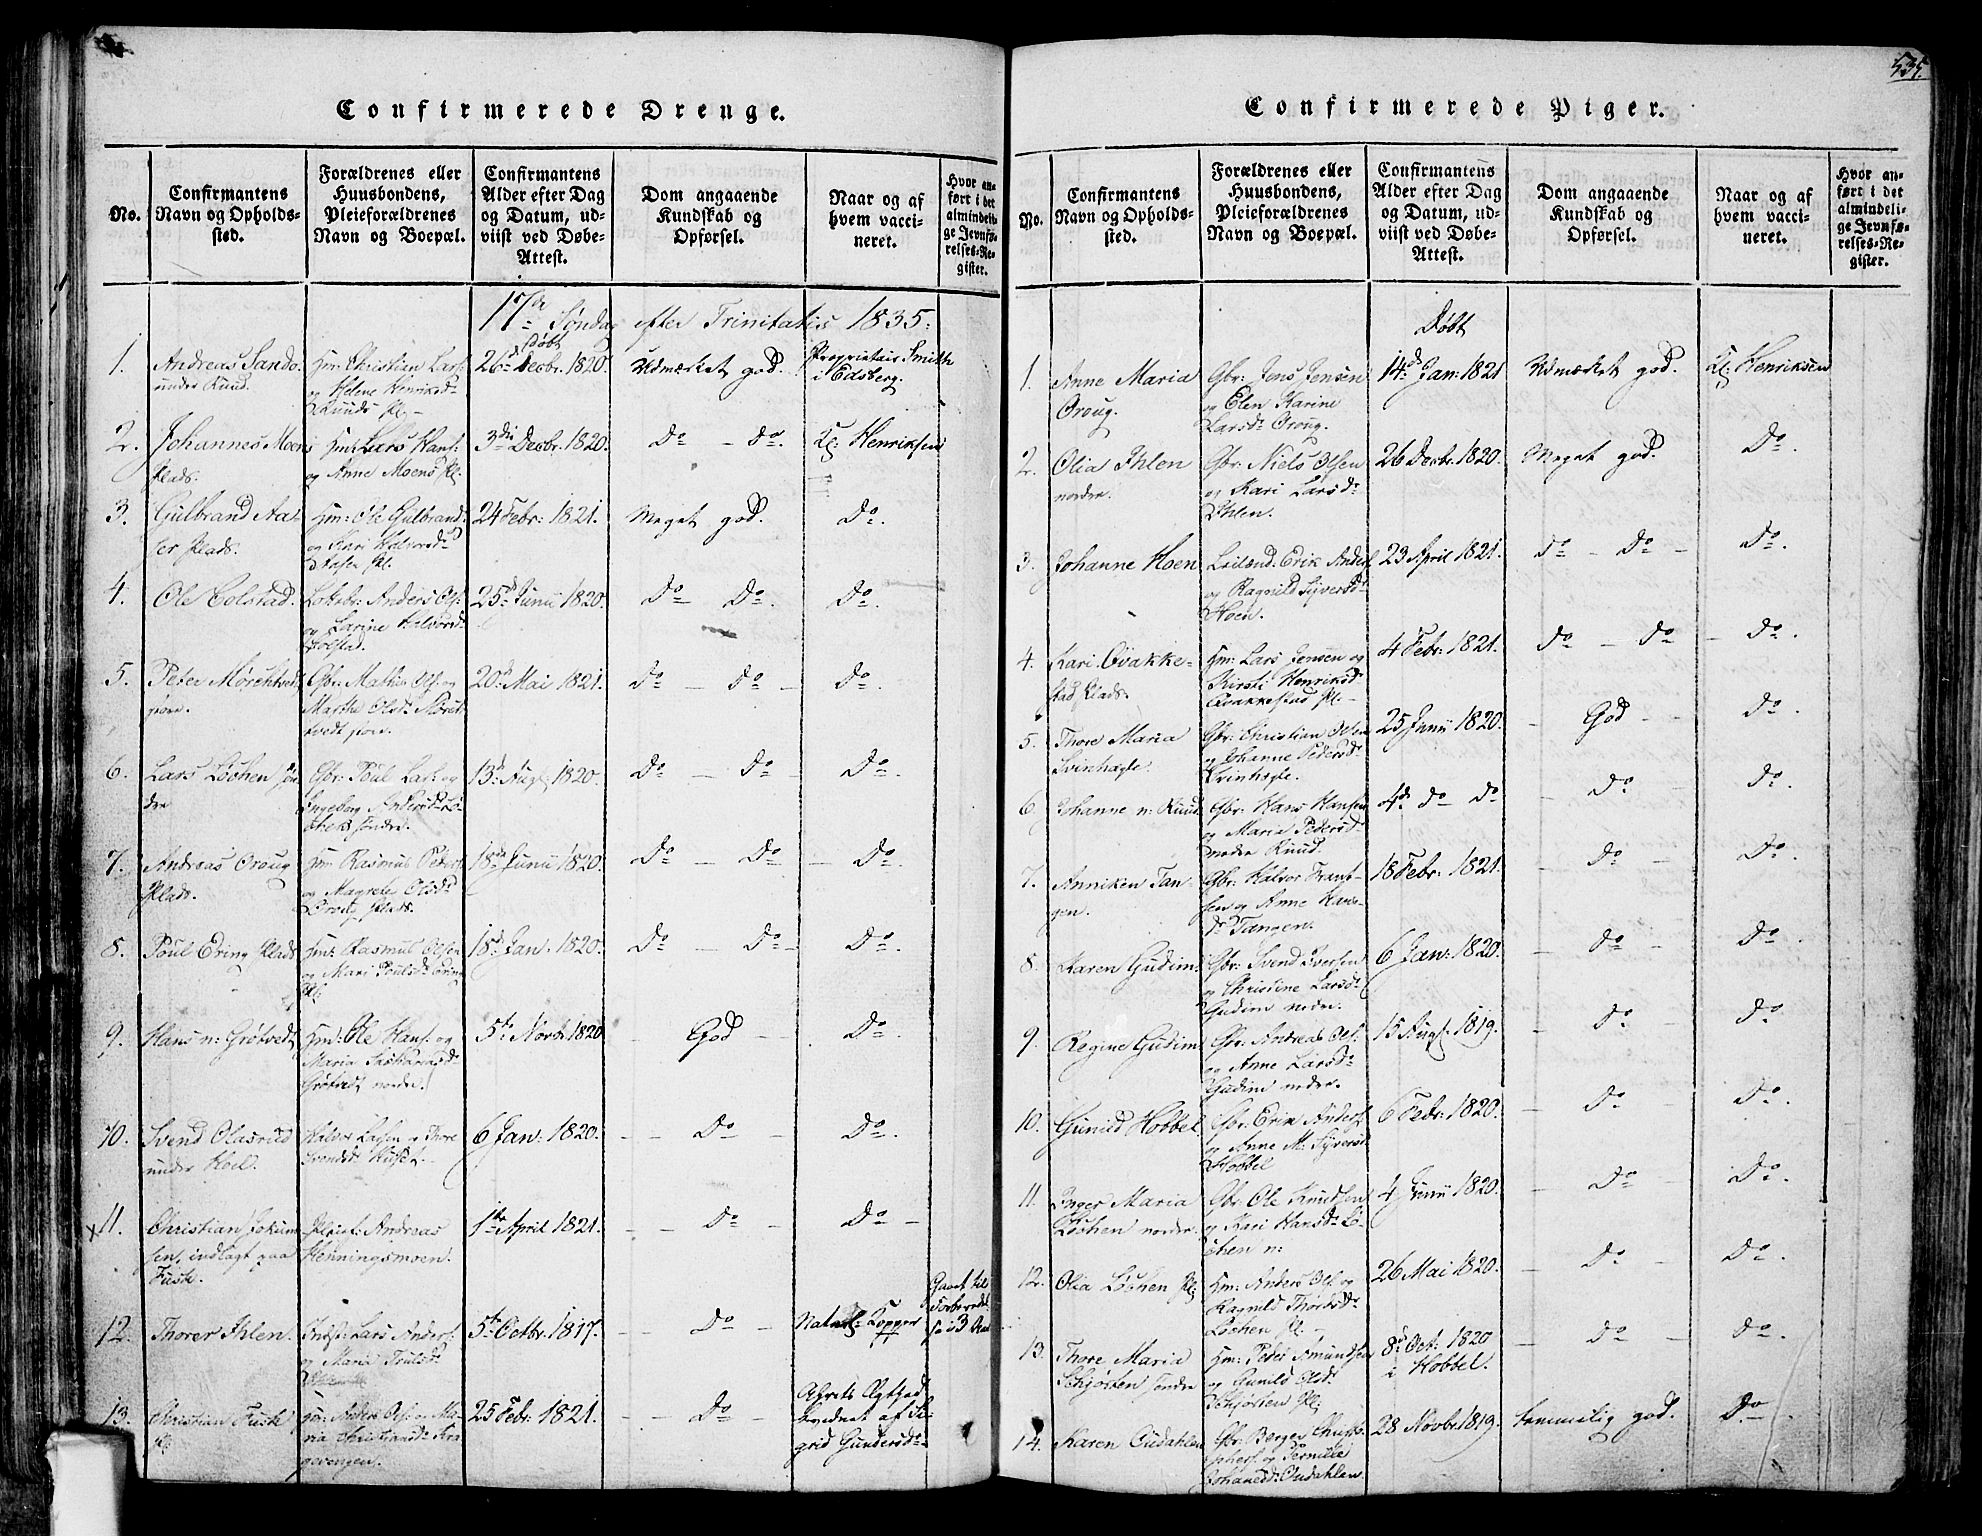 535.
Confirmerede Drenge.
No.
Confirmantens Navn og Opholds-
sted.
Forældrenes eller
Huusbondens,
Pleieforældrenes
Navn og Boepæl.
Confirmantens
Alder efter Dag
og Datum, ud-
viist ved Døbe-
Attest.
Dom angaaende
Kundskab og
Opførsel.
Naar og af
hvem vacci-
neret.
Hvor an-
ført i det
almindeli-
ge Jevnfø-
relses-Re-
gister.
17de Søndag efter Trinitatis 1835:
Døbt
1. Andreas Sando
under Ruud.
Hm: Christian Lars:
og Helene Henriksd:
Ruuds Pl:
26d Decbr. 1820.
Udmærket god.
Proprietair Smith
i Edsberg.
2. Johannes Moens
Plads.
Hm: Lars Hans:
og Anne Moens Pl:
3die Decbr. 1820.
Do – Do.
Kl: Henriksen
3. Gulbrand Aa-
ser Plads.
Hm: Ole Gulbrand:
og Kari Halvorsd:
Aasen Pl.
24 Febr: 1821.
Meget god.
Do.
4. Ole Colstad.
Anders Ols:
og Karine Halvorsd:
Kolstad.
25d Junii 1820.
Do – Do.
Do.
5. Peter
Gbr: Mathis Ols: og
Marthe Olsd:
20d Mai 1821.
Do – Do –
Do.
6. Lars Løchen søn-
dre
Gbr: Poul Lars: og
Ingeborg Andersd: Lø-
chen søndre.
13d Aug: 1820.
Do – Do –
Do.
7. Andreas Oroug
Plads.
Hm: Rasmus Peders:
og Magrete Olsd:
Oroug Plads.
18de Junii 1820.
Do – Do –
Do.
8. Poul Ering Plads
Hm: Rasmus Olsen
og Mari Poulsd: Ering
Pl:
18d Jan: 1820.
Do – Do –
Do.
9. Hans n: Grøtvedt
Hm: Ole Hans: og
Maria
Grøtvedt nordre.
5te Novbr 1820
God –
Do.
10. Svend Olasrud
under Hoel.
Halvor Lassen og Thore
Svendsd:
6 Jan: 1820.
Do –
Do.
11. Christian Jokum-
sen, indlagt paa
Fusk.
Pleief: Andreas
Henningsmoen.
1ste April 1821.
Do –
Do –
12. Thorer Ihlen.
Inds: Lars Anders:
og Maria Trulsd:
5te Octbr. 1817.
Do –
Naturl: Kopper
Gaaet til
Forberedel-
se i 3 Aar
13. Christian Fusk
Pl:
Hm: Anders Ols: og Ma-
ria Christiansd:
25 Febr. 1821.
Do –
af Si-
grid Gundersd:
Confirmerede Piger.
No.
Confirmantens
Navn og Opholds-
sted.
Forældrenes eller
Huusbondens,
Pleieforældrenes
Navn og Boepæl.
Confirmantens
Alder efter Dag
og Datum, ud-
viist ved Døbe-
Attest.
Dom angaaende
Kundskab og
Opførsel.
Naar og af
hvem vacci-
neret.
Hvor an-
ført i det
almindeli-
ge Jevnfø-
relses-Re-
gister.
Døbt
1. Anne Maria
Oroug.
Gbr: Jens Jensen
og Elen Karine
Larsd: Oroug.
14d Jan: 1821
Udmærket god.
Kl: Henriksen
2. Olia Ihlen
nordre.
Gbr: Niels Olsen
og Kari Larsd:
Ihlen.
26 Decbr. 1820.
Meget god.
Do.
3. Johanne Hoen
Leilænd: Erik Anders:
og Ragnild Syversd:
Hoen.
23 April 1821.
Do – Do –
Do.
4. Kari Qvakke-
stad Plads.
Hm: Lars Jensen og
Kirsti Henriksd:
Qvakkestad Pl. –
4 Febr: 1821.
Do – Do
Do.
5. Thore Maria
Svinhagle.
Gbr: Christian Olsen
og Johanne Pedersd:
Svinhagle.
25 Junii 1820.
God –
Do.
6. Johanne n: Ruud
Gbr: Hans Hansen
og Maria Pedersd:
nedre Ruud.
4de Do Do
Do –
Do.
7. Anniken Tan-
gen.
Gbr: Halvor Frant-
sen og Anne Hans-
dr Tangen.
18 Febr: 1821.
Do –
Do.
8. Karen Gudim.
Gbr: Svend Iversen
og Christine Larsd:
Gudim nedre.
6 Jan: 1820.
Do –
Do.
9. Regine Gudim.
Gbr: Andreas Ols:
og Anne Larsd:
Gudim nedre.
15 Aug: 1819.
Do –
Do
10. Gunild Hobbel.
Gbr: Erik Anders:
og Anne M: Syversd:
Hobbel
6 Febr: 1820.
Do –
Do.
11. Inger Maria
Løchen nordre.
Gbr. Ole Knudsen
og Kari Hansd: Lø-
chen n:
4 Junii 1820.
Do –
Do.
12. Olia Løchen Pl:
Hm: Anders Ols: og
Ragnild Thordsdr
Løchen Pl. –
26 Mai 1820.
Do –
Do.
13. Thore Maria
Schjørten søndre
Hm: Peder Amundsen
og Gunild Olsd:
Schjørten Pl:
8d Oct: 1820
i Hobbel.
Do –
Do.
14. Karen Oudahlen
Gbr: Berger Christo-
phers: og Pernille
Johannesd: Oudahlen
28 Novbr 1819.
temmelig god.
Do –